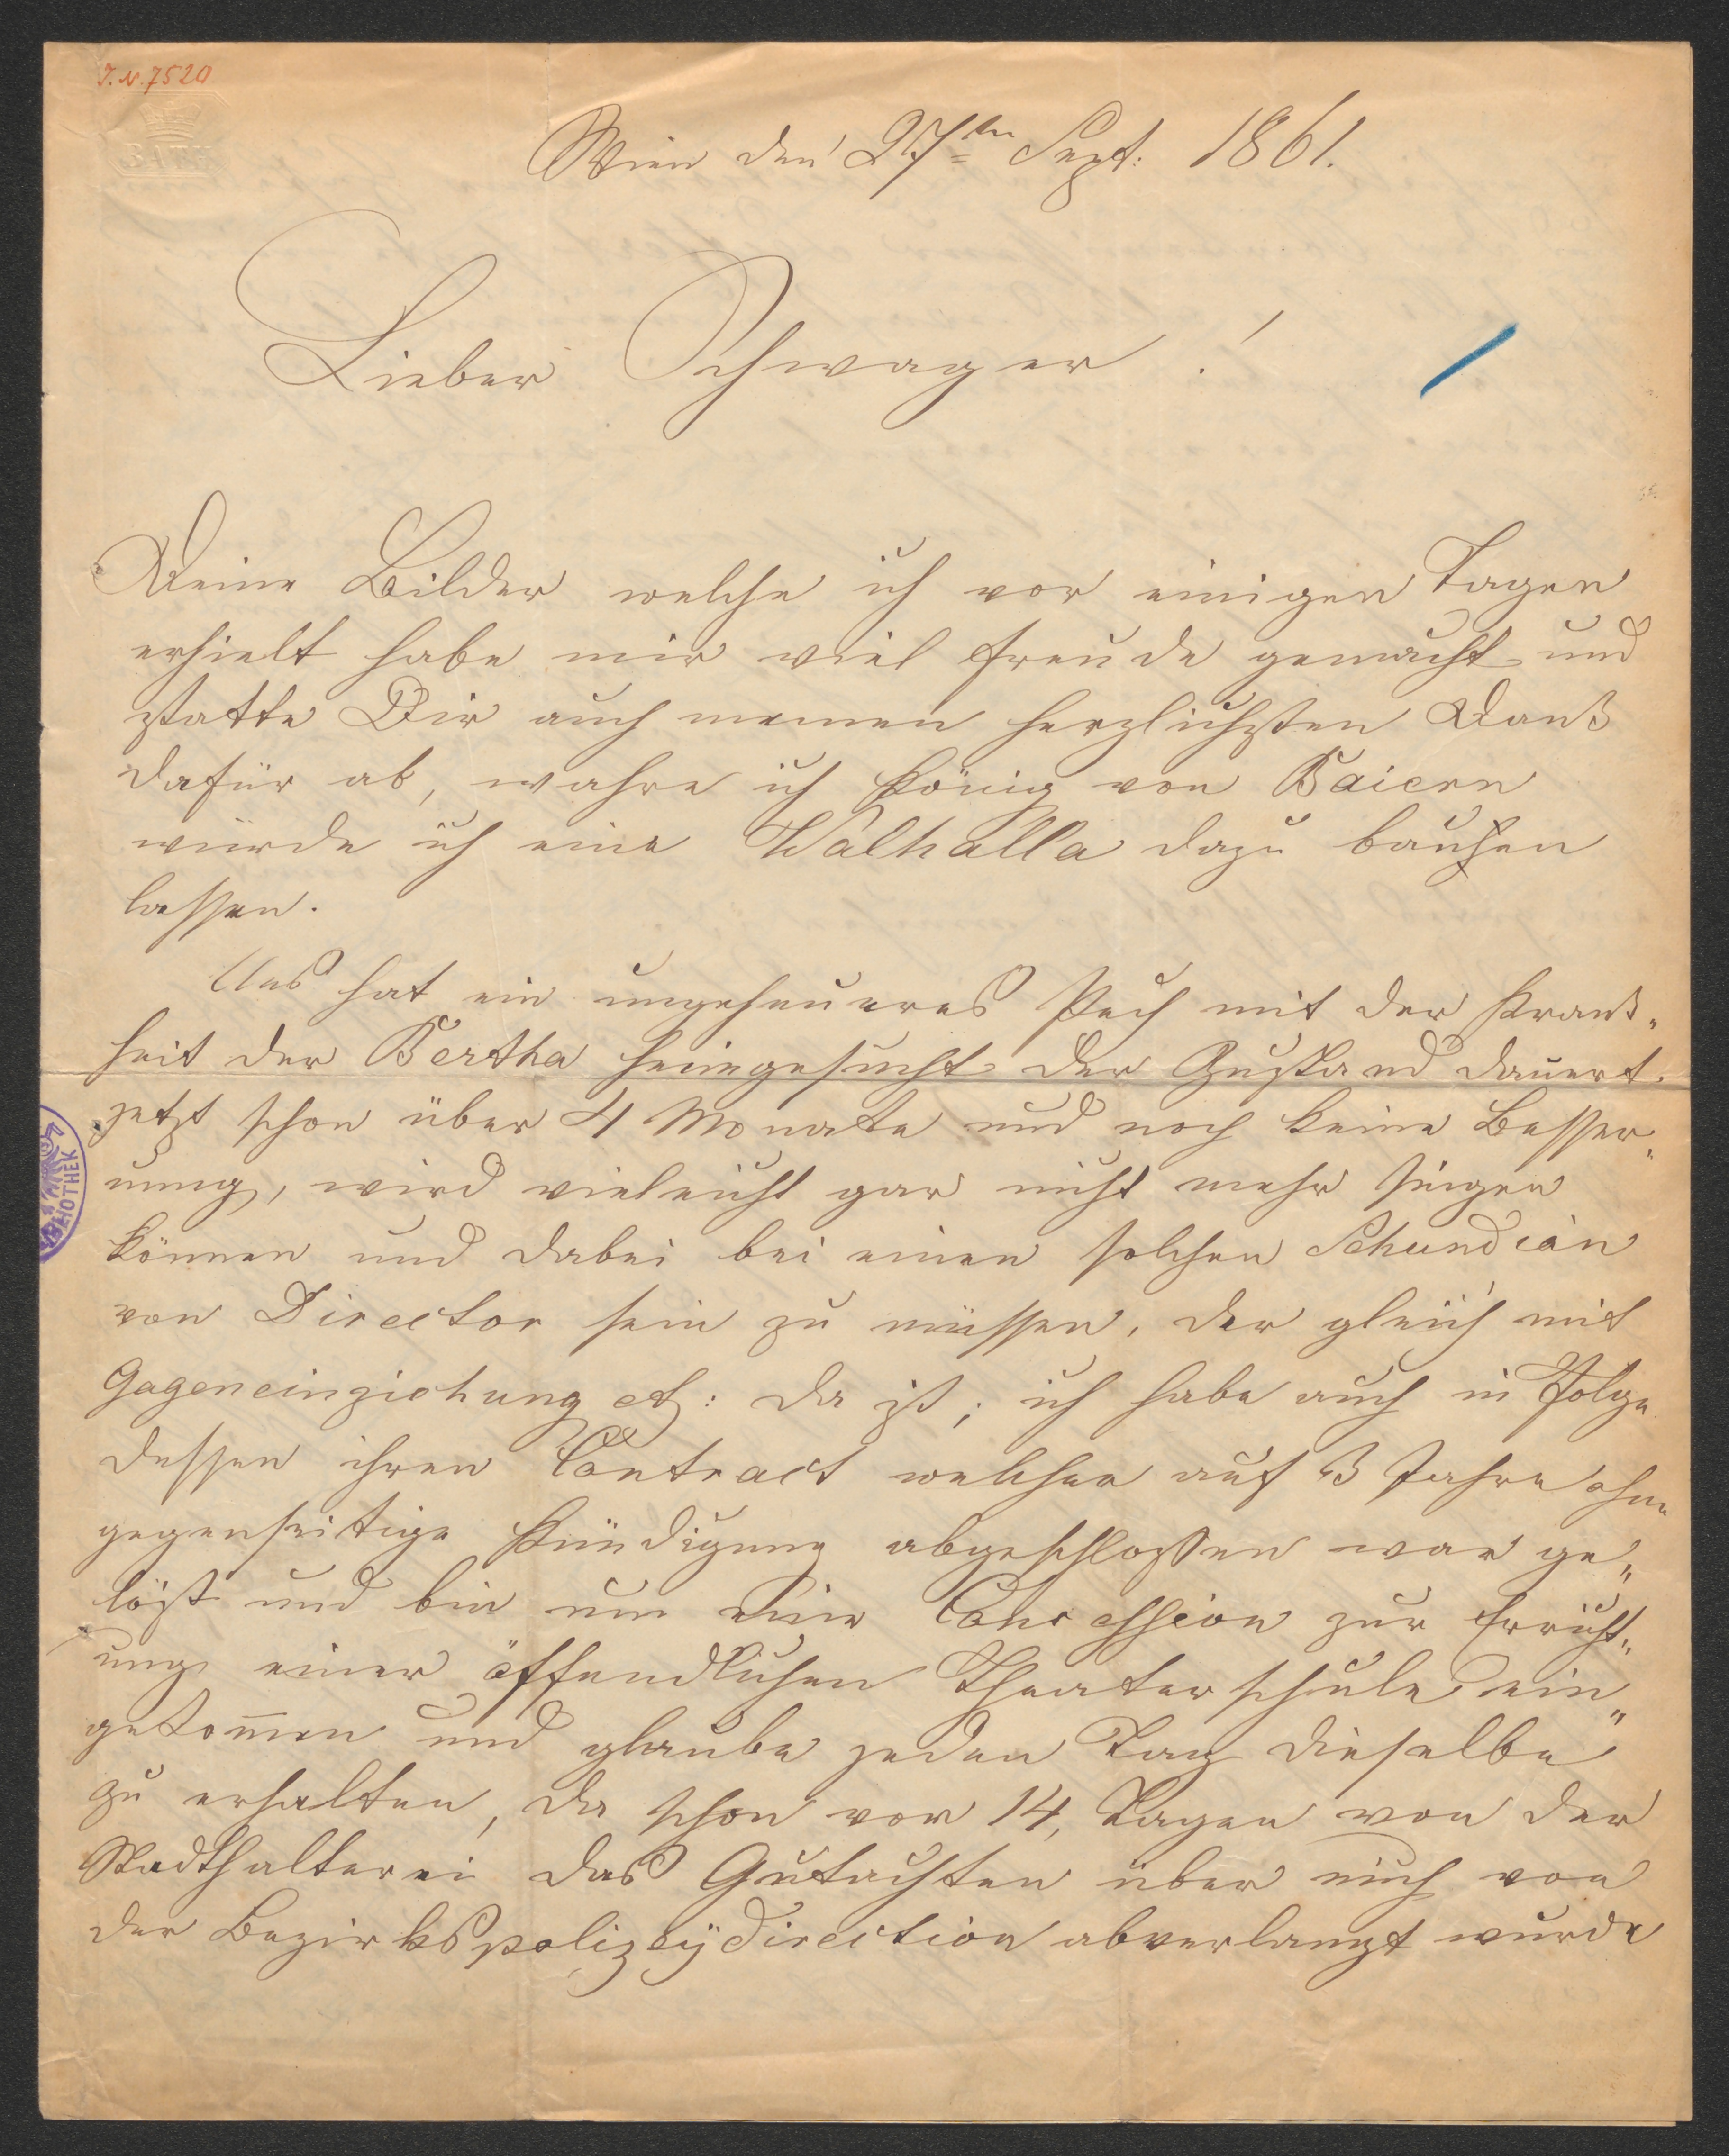 J.N. 7520
BATH
Wien den 27ten Sept: 1861.
Lieber Schwager!
Deine Bilder welche ich vor einigen Tagen
erhielt habe mir viel Freude gemacht und
statte Dir auch meinen herzlichsten Dank
dafür ab, wahre ich König von Baiern
würde ich eine Walhalla dazu bauhen
lassen.
Uns hat ein ungeheueres Pech mit der Krank„
heit der Bertha heimgesucht der Zustand dauert
jetzt schon über 4 Monate und noch keine Besser„
unng, wird vieleicht gar nicht mehr singen
können und dabei bei einen solchen Schundian
von Director sein zu müssen, der gleich mit
Gageneinziehung etz: da ist; ich habe auch in Folge
dessen ihren Contract welcher auf 3 Jahre ohne
gegenseitige Kündigung abgeschloßen war ge„
löst und bin um eine Concession zur Erricht„
ung einer öffendlichen Theaterschule ein„
gekom̅en und glaube jeden Tag dieselbe
zu erhalten, da schon vor 14, Tagen von der
Stadthalterei das Gutachten über mich von
der Bezirkspolizeÿdirection abverlangt wurde
BLIOTHEK